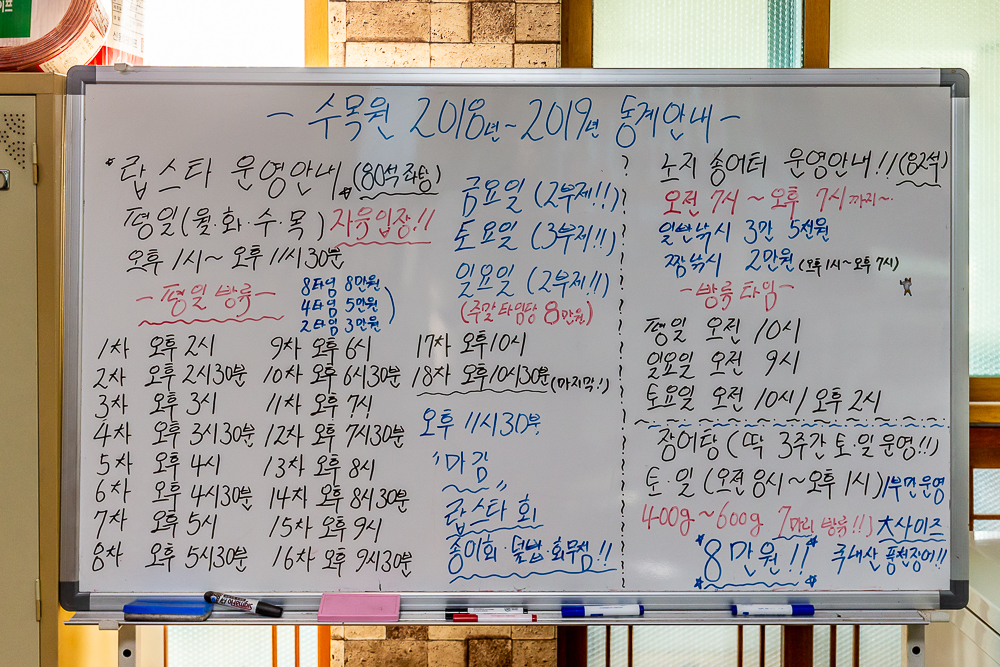 - 수목원 2018년~2019년 통계안내 -
*랍스타 운영안내* (80석 좌탕)
평일(월·화·수·목) 자유입장!!
오후 1시~오후 11시30분
-평일 방류-
8타임 8만원
4타임 5만원
2타임 3만원
금요일 (2부제!!)
토요일 (3부제!!)
일요일 (2부제!!)
(주말 타임당 8만원)
1차 오후 2시
2차 오후 2시30분
3차 오후 3시
4차 오후 3시30분
5차 오후 4시
6차 오후 4시30분
7차 오후 5시
8차 오후 5시30분
9차 오후 6시
10차 오후 6시30분
11차 오후 7시
12차 오후 7시30분
13차 오후 8시
14차 오후 8시30분
15차 오후 9시
16차 오후 9시30분
17차 오후10시
18차 오후10시30분(마지막!)
오후 11시30분
"마감"
랍스타 회
송어회·덮밥·회무침!!
노지 송어터 운영안내!!(82석)
오전 7시~오후 7시까지~
일반낚시 3만 5천원
짬낚시 2만원(오후1시~오후7시)
-방류타임-
평일 오전 10시
일요일 오전 9시
토요일 오전 10시/오후 2시
장어탕(딱 3주간 토·일운영!!)
토·일(오전 8시~오후 1시)1부만운영
400g~600g 7마리 방류!!) 大사이즈
*8만원!!* 국내산 풍천장어!!